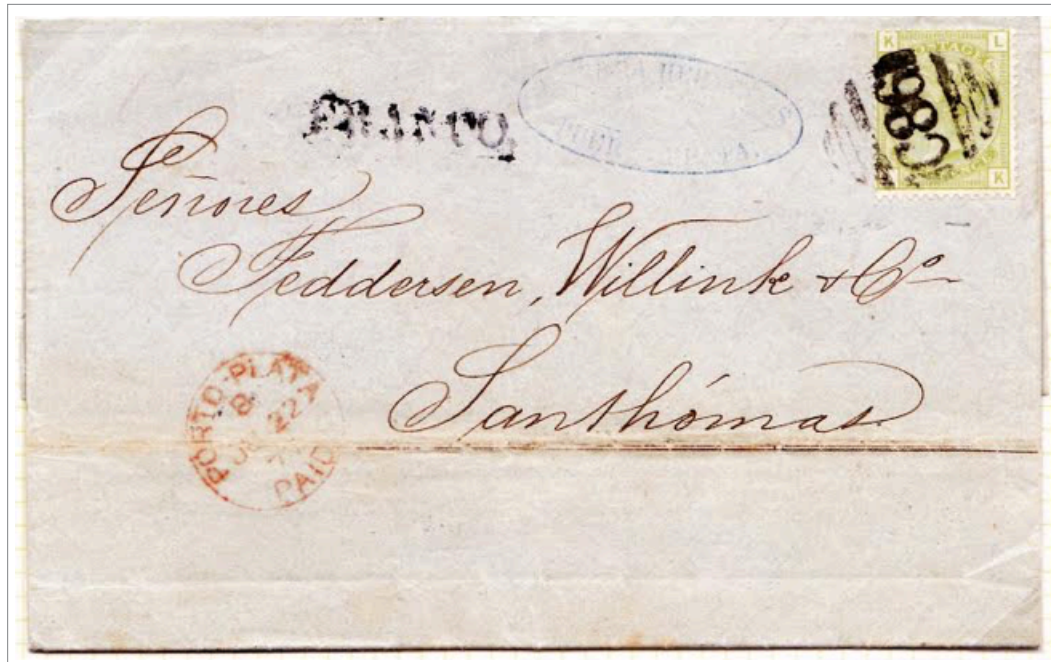 FRANCO.
K L
C86
K
Señores
Feddersen, Willink & Co
Santhómas
PORTO-PLATA
22
PAID